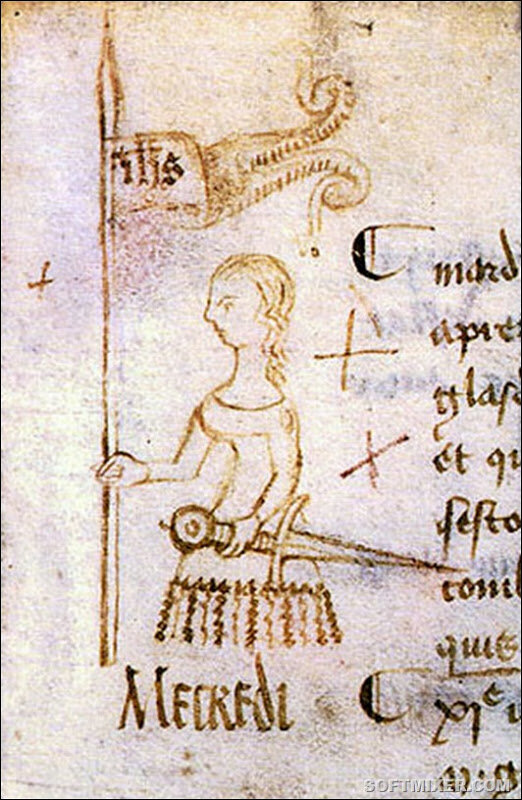 JHS
mard
apre
glasd
et qu
sesto
comb
quis
MECREDI
xje
SOFTMIXER.COM